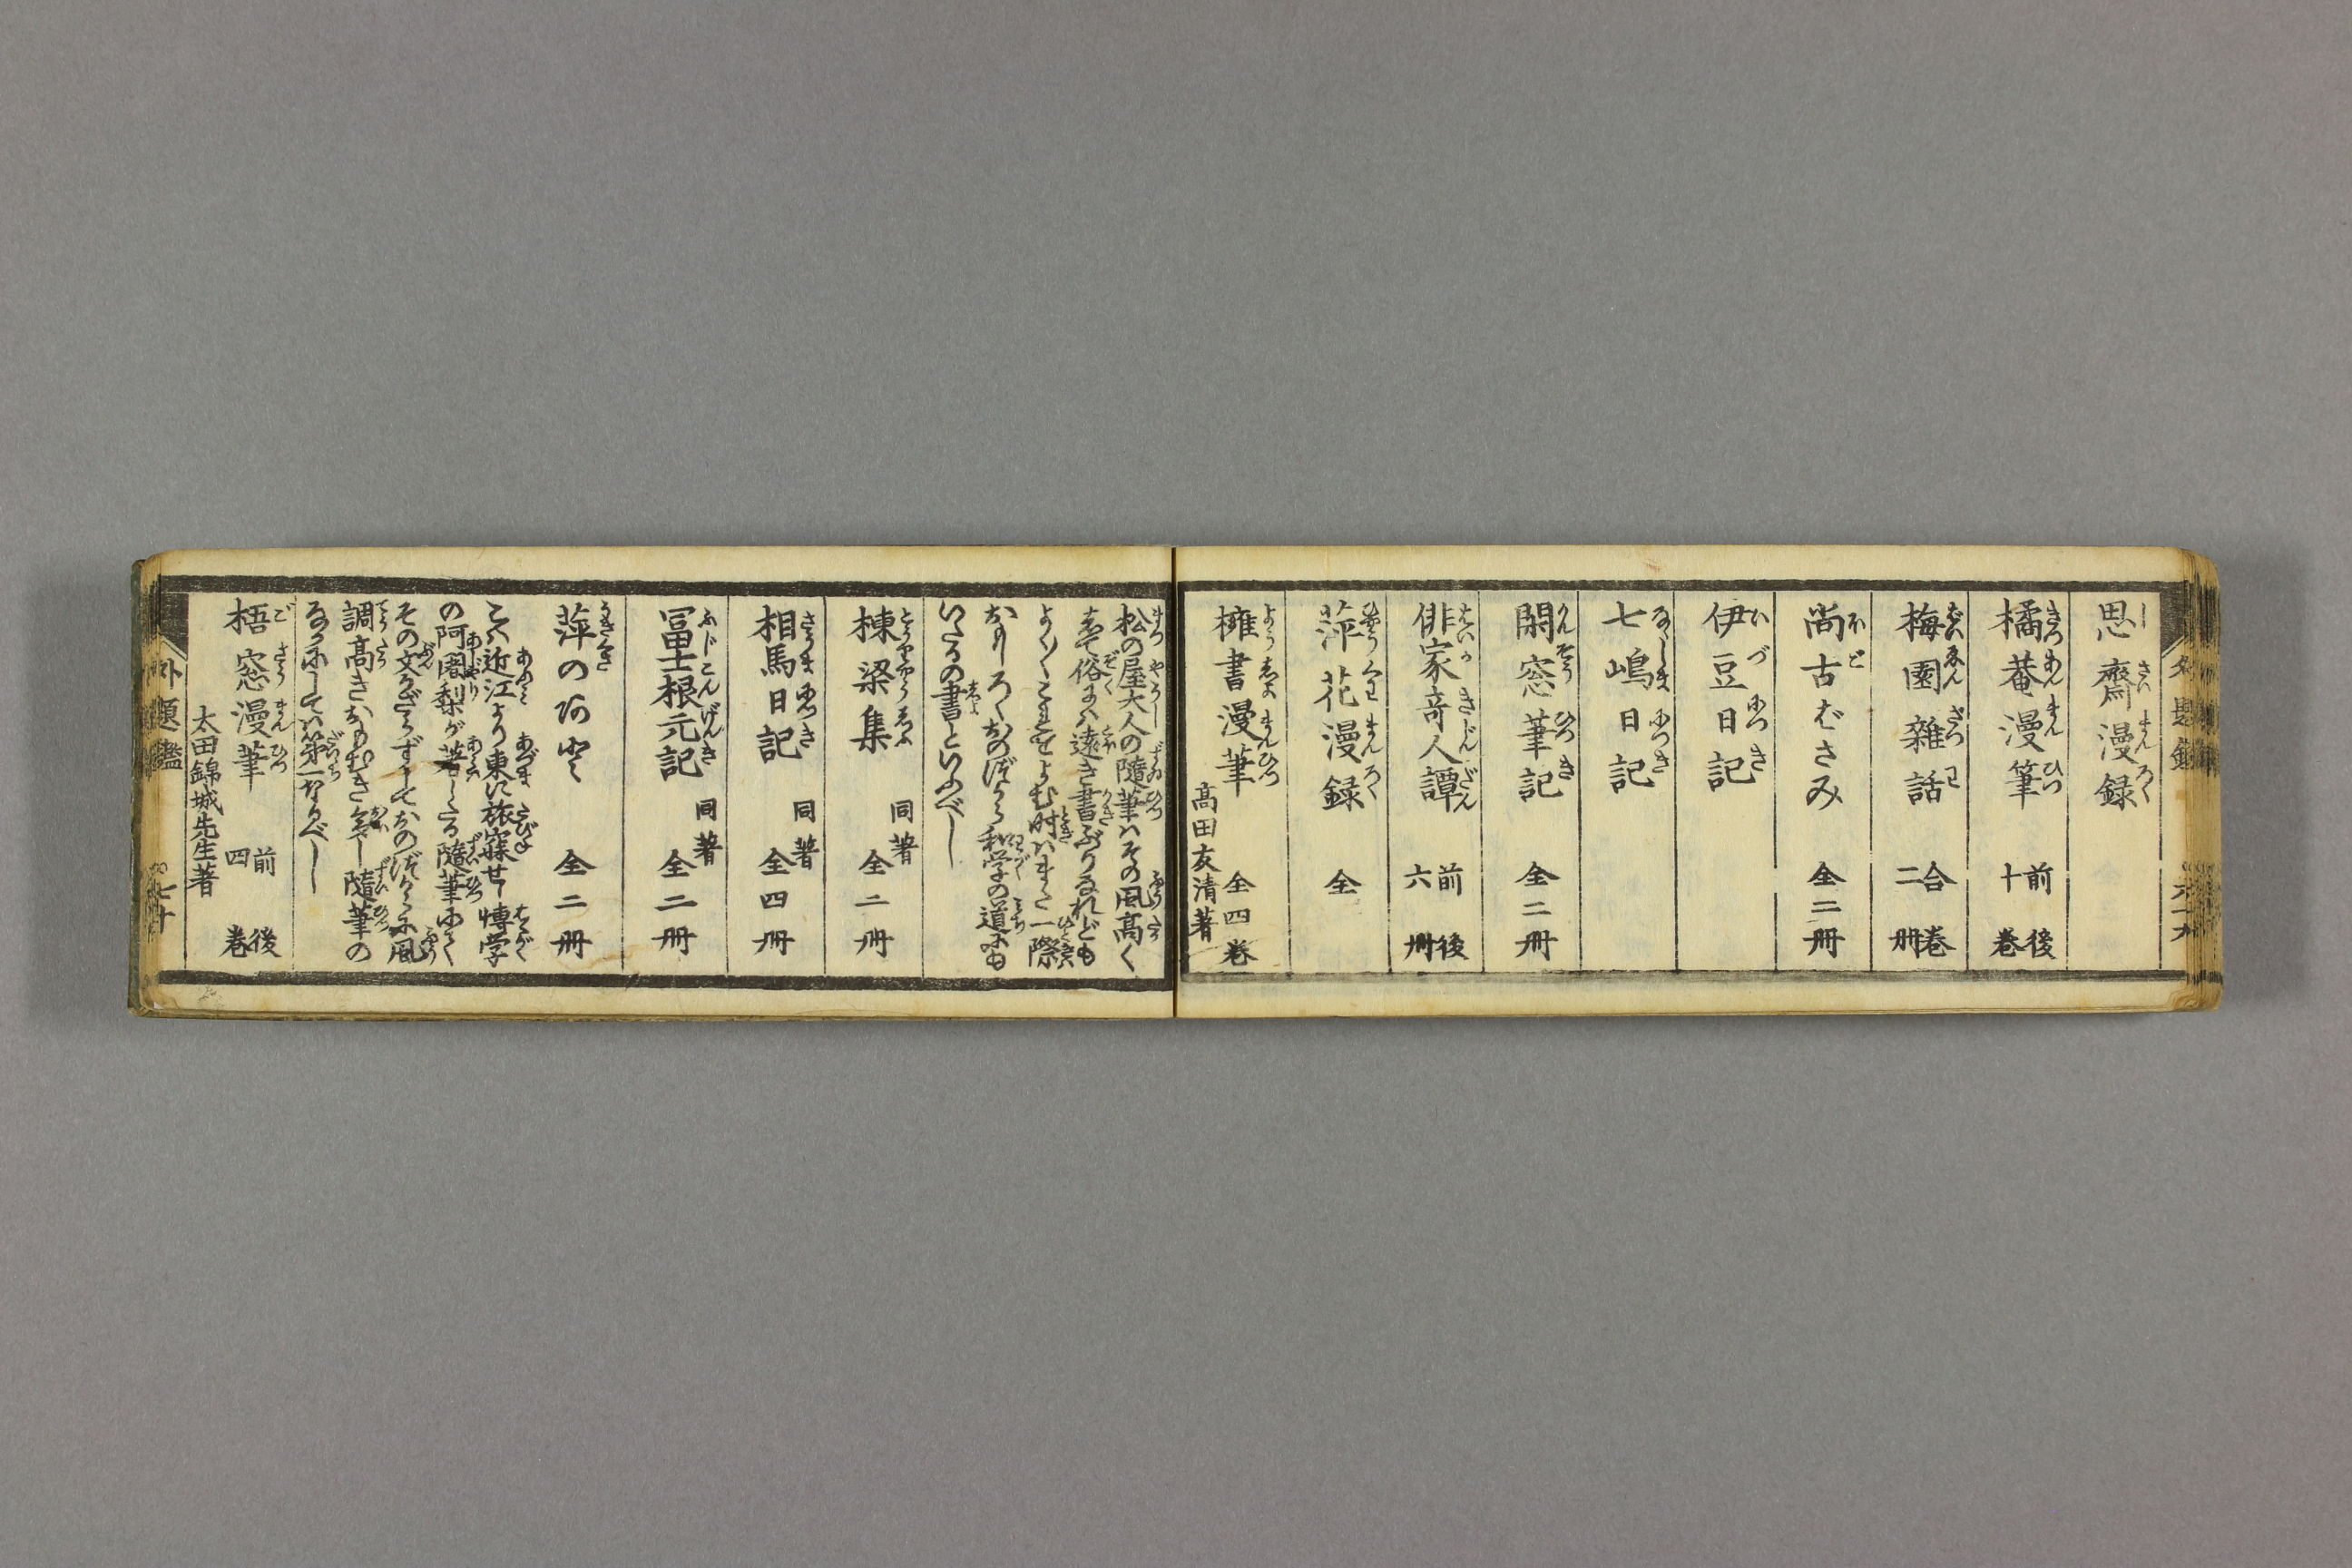 思齋漫録
橘菴漫筆 前後十巻
梅園雜話 合巻二冊
尚古ばさみ 全二冊
伊豆日記
七嶋日記
閑窓筆記 全二冊
俳家竒人譚 前後六冊
萍花漫録 全
擁書漫筆 全四巻
高田友清著
松の屋大人の隨筆ハその風高く
して俗には遠き書ぶりなれども
よく〳〵こゝをよむ時ハまた一際
おもしろくおのづから和学の道にも
いたるの書といふべし
棟梁集 同著 全二冊
相馬日記 同著 全四冊
冨士根元記 同著 全二冊
萍の跡 全二冊
こハ近江より東に旅寐せし博学
の阿闍梨が著したる隨筆にて
その文かざらずしておのづから風
調高きおもむき
隨筆の
なかにしてハ第一なるべし
梧窓漫筆 前後四巻
太田錦城先生著
外題鑑
七十